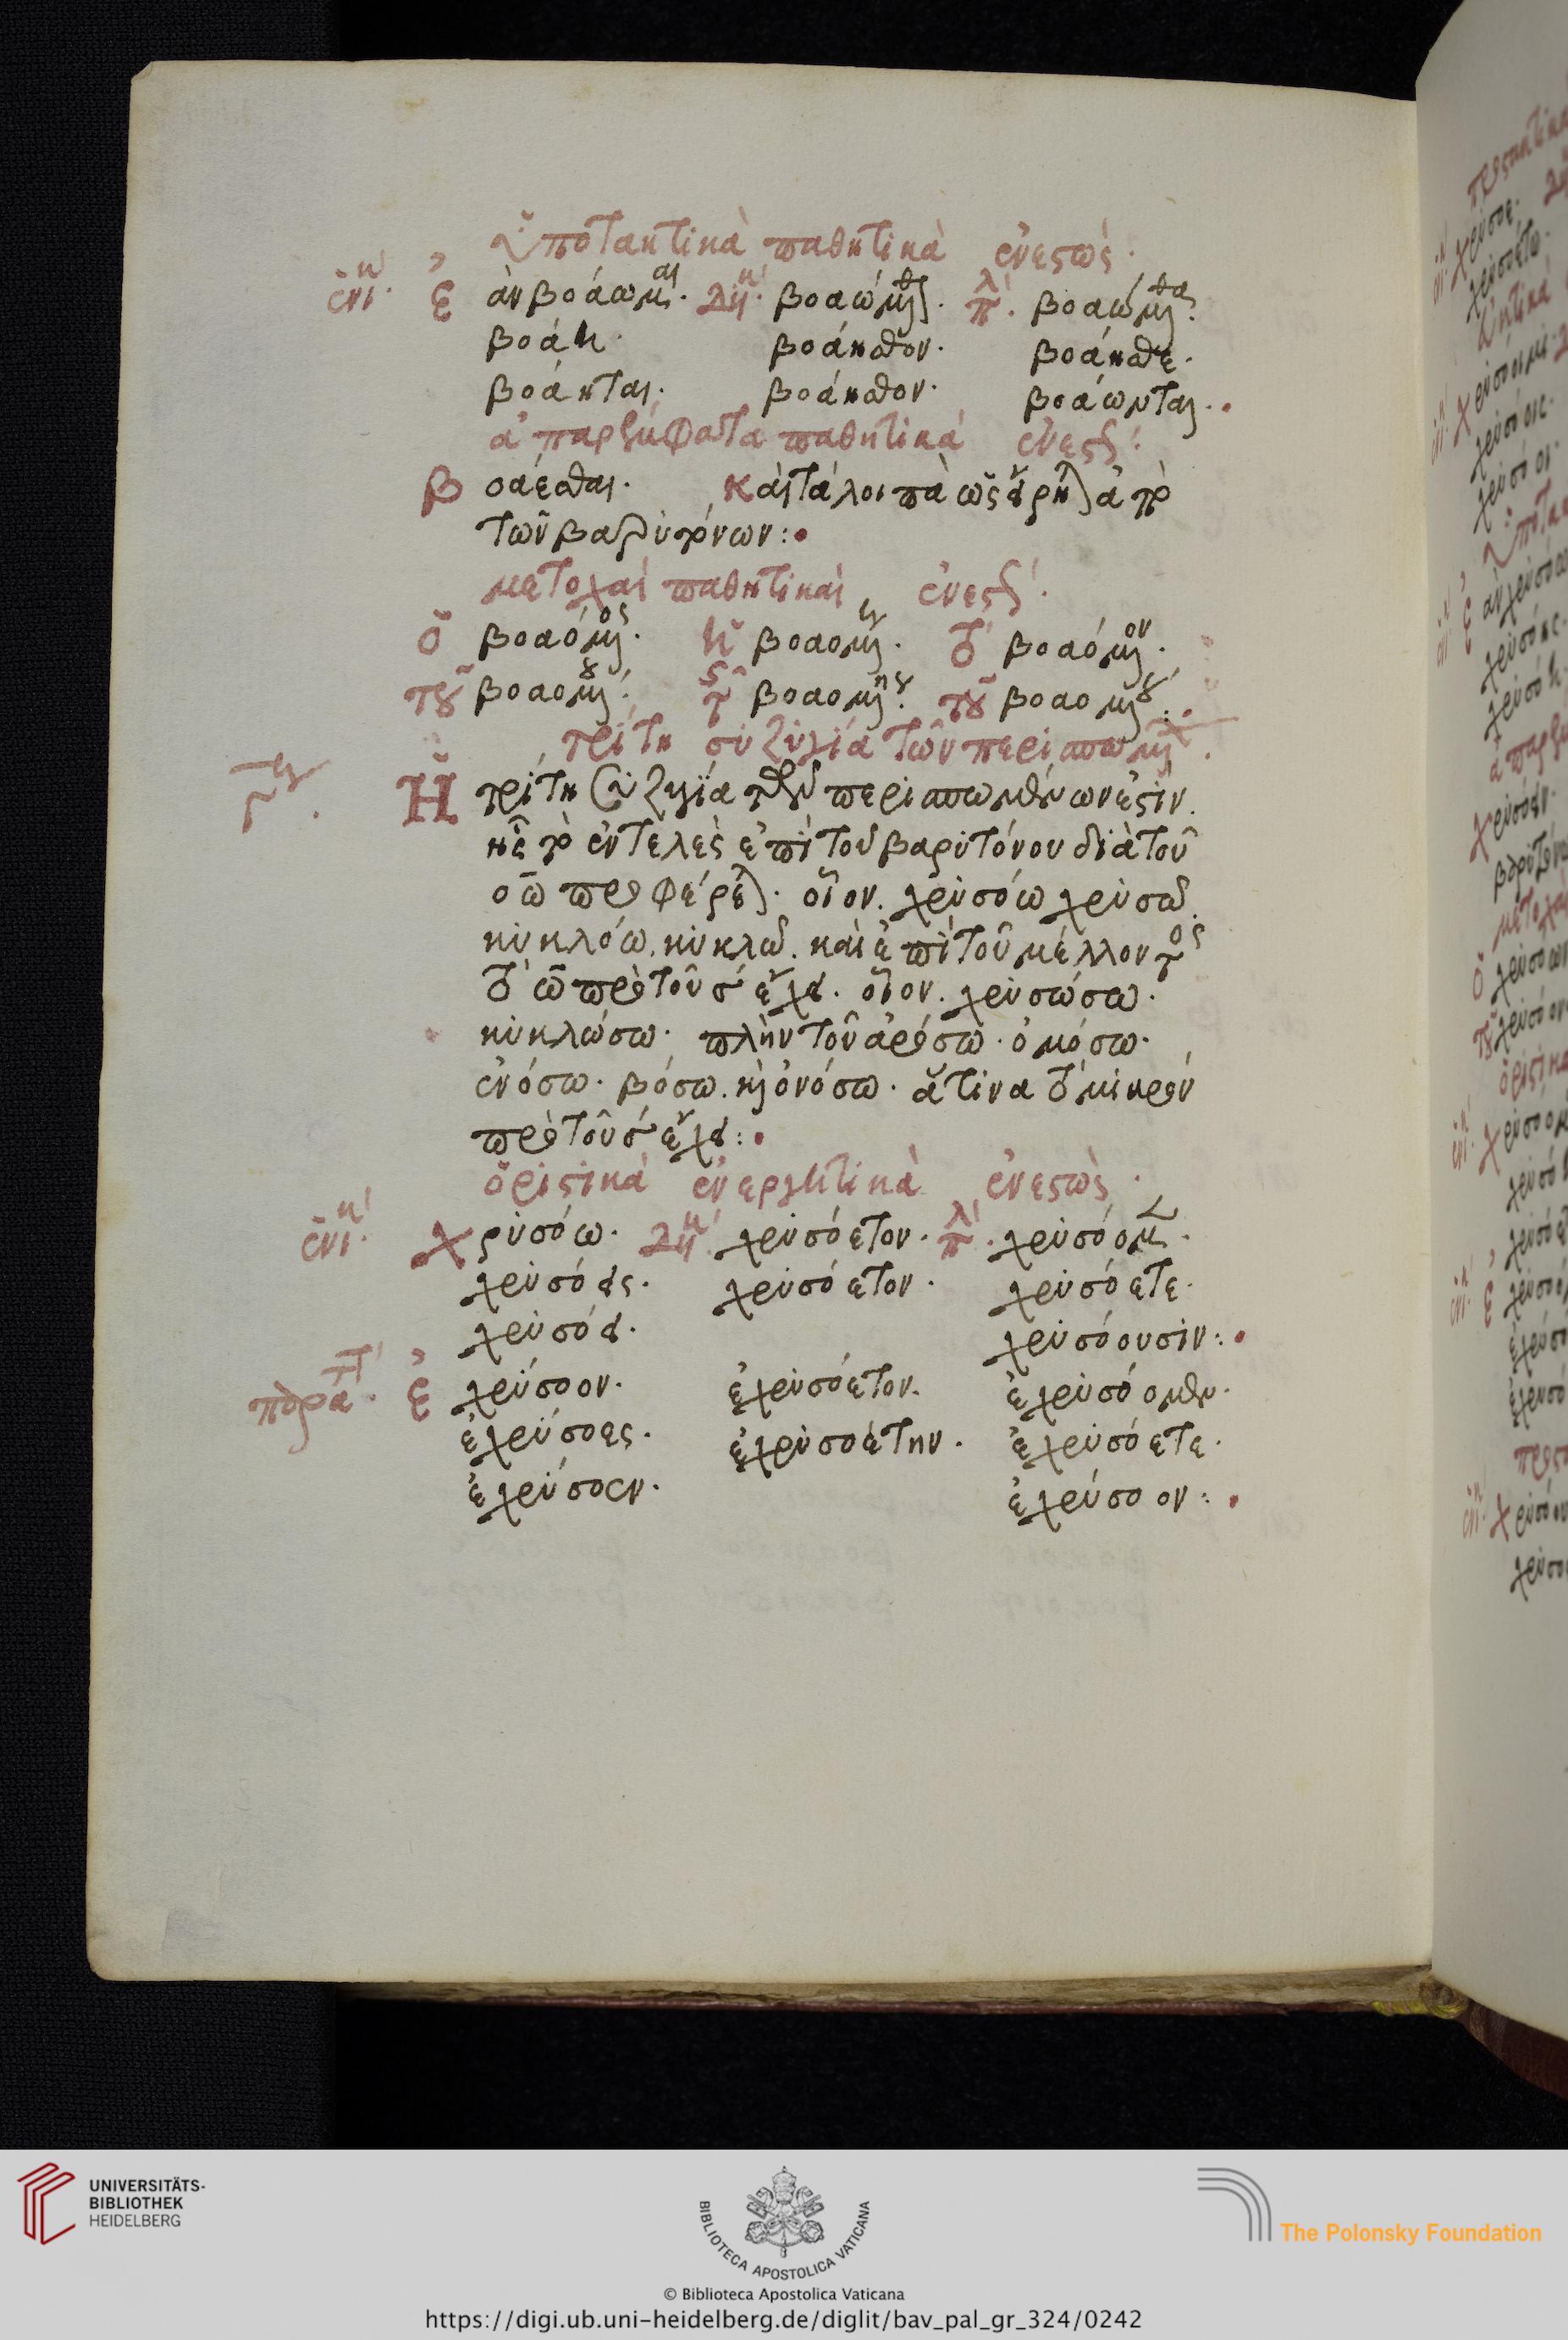 ὑποτακτικὰ παθητικὰ ἐνεστώς·
ἑνικ· ἐ ἂν βοάωμαι· δυϊκ· βοαώμεθον· πλ· βοαώμεθα·
βοάη· βοάησθον· βοάησθε·
βοάηται· βοάησθον· βοάωνται·
ἀπαρέμφατα παθητικὰ ἐνεστ·
βοάεσθαι· καὶ τὰ λοιπὰ ὡς εὕρηται ἀπὸ
τῶν βαρυτόνων:
μετοχαὶ παθητικαὶ ἐνεστ·
ὁ βοαόμενος· ἡ βοαομένη· τὸ βοαόμενον·
τοῦ βοαομένου· τῆς βοαομένης· τοῦ βοαομένου:
τρίτη συζυγία τῶν περισπωμένων·
γ· Ἡ τρίτη συζυγία τῶν περισπωμένων ἐστὶν
ἧς τὸ ἐντελὲς ἐπὶ τοῦ βαρυτόνου διὰ τοῦ
οω προφέρεται· οἷον. χρυσόω χρυσῶ.
κυκλόω. κυκλῶ. καὶ ἐπὶ τοῦ μέλλοντος
τὸ ω πρὸ τοῦ σ ἔχει· οἷον. χρυσώσω·
κυκλώσω· πλὴν τοῦ ἀρόσω· ὀμόσω·
ἐνόσω· βόσω. καὶ ὀνόσω· ἅτινα τὸ μικρὸν
πρὸ τοῦ σ ἔχει:
ὁριστικὰ ἐνεργητικὰ ἐνεστὼς·
ἑνικ· χρυσόω· δυϊκ· χρυσόετον· πλ· χρυσόομεν·
χρυσόεις· χρυσόετον· χρυσόετε·
χρυσόει· χρυσόουσιν:
παρατ· ἐχρύσοον· ἐχρυσόετον· ἐχρυσόομεν·
ἐχρύσοες· ἐχρυσοέτην· ἐχρυσόετε·
ἐχρύσοεν· ἐχρύσοον:
UNIVERSITÄTS-
BIBLIOTHEK
HEIDELBERG
BIBLIOTECA APOSTOLICA VATICANA
The Polonsky Foundation
© Biblioteca Apostolica Vaticana
https://digi.ub.uni-heidelberg.de/diglit/bav_pal_gr_324/0242